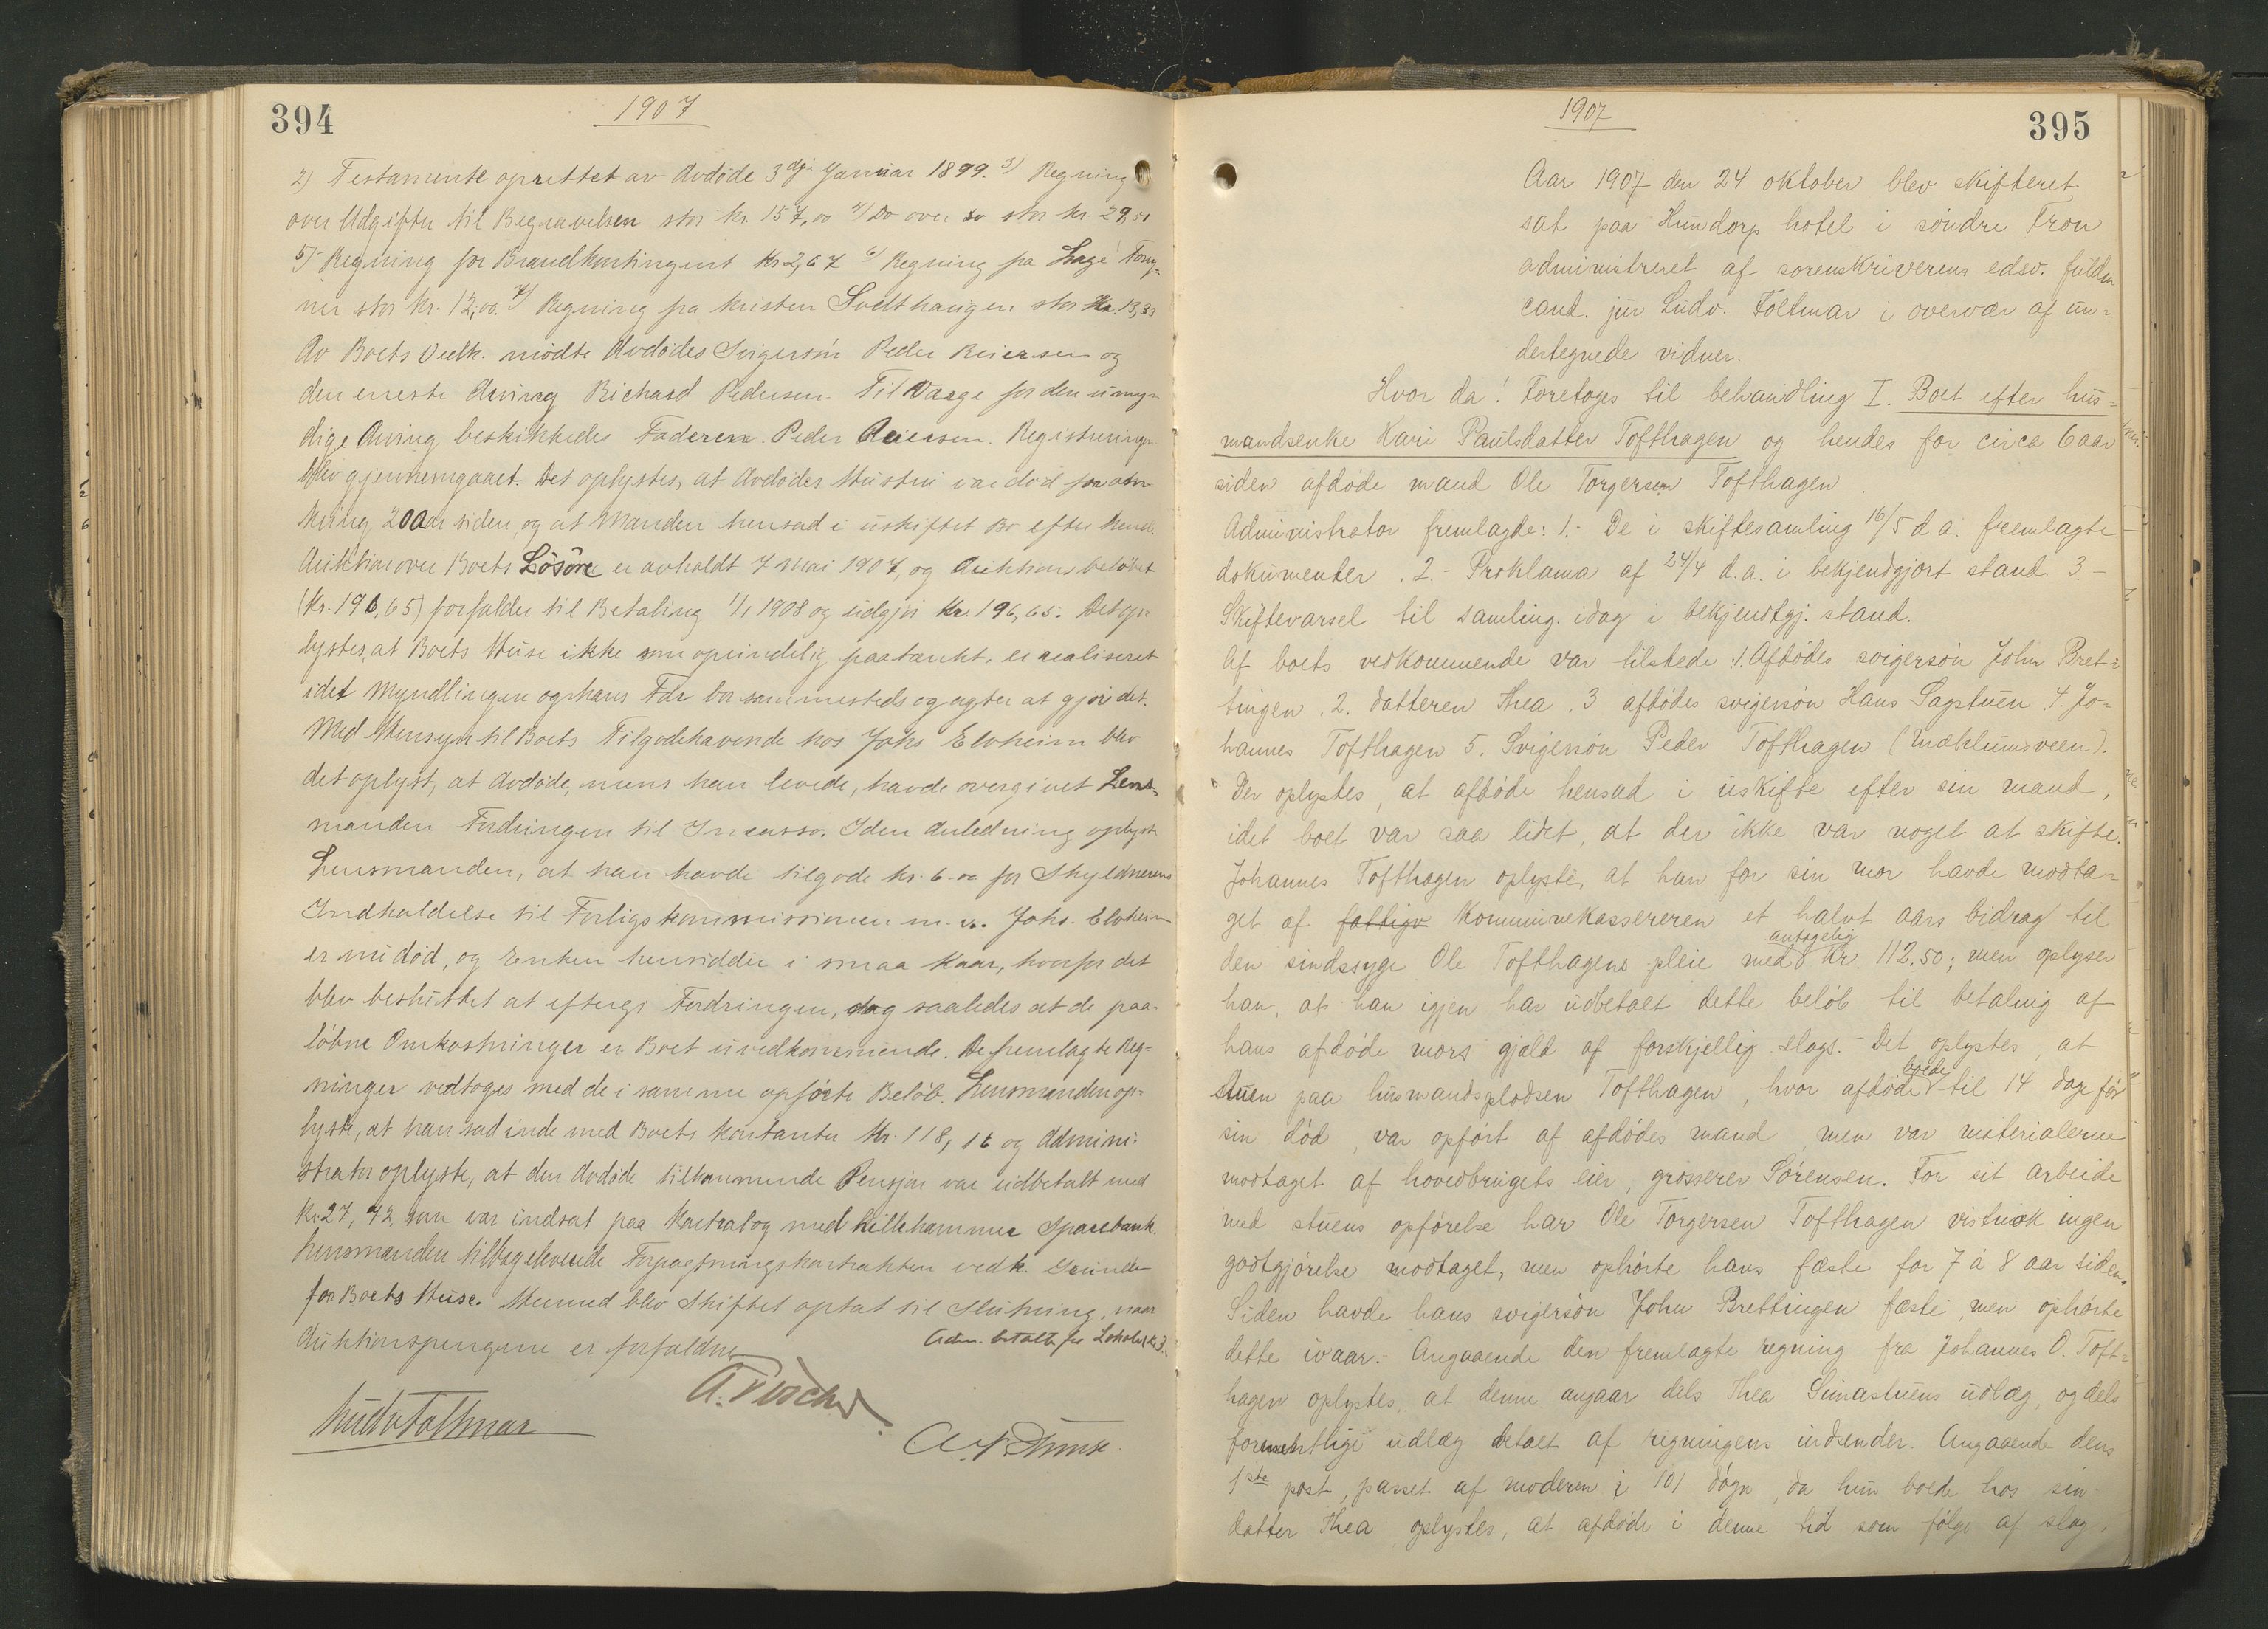 394
1907
2) Testamente oprettet av Avdöde 3dje Januar 1899. 3) Regning
over Udgifter til Begravelsen stor kr. 157,00 4) Do over do stor kr. 29,51
5) Regning for Brandkontingent kr 2,67 6) Regning fra Lage
ner stor kr. 12,00. 7) Regning fra Kristen Svelthaugen stor kr. 13,33
Av Boets Vedk. mödte Avdödes Svigersön Peder Reiersen og
den eneste Arving Richard Pedersen. Til Værge for den umyn-
dige Arving beskikkedes Faderen Peder Reiersen. Registreringen
blev gjennemgaaet. Det oplystes, at Avdödes Hustru var död for om-
kring 20 Aar siden, og at Manden hensad i uskiftet Bo efter hende.
Auktion over Boets Lösöre er avholdt 7 Mai 1907, og Auktionsbelöbet
(Kr. 196,65) forfalder til Betaling 1/1 1908 og udgjör Kr. 196,65. Det op-
lystes, at Boets Huse ikke som oprindelig paatænkt, er realiseret
idet Myndlingen og hans Far bor sammesteds og agter at gjöre det.
Med Hensyn til Boets Tilgodehavende hos Johs Elvheim blev
det oplyst, at Avdöde, mens han levede, havde overgivet Lens-
manden Fordringen til Incasso. I den Anledning oplyste
Lensmanden, at han havde tilgode kr. 6.00 for Skyldnerens
Indkaldelse til Forligskommissionen m.v. Johs. Elvheim
er nu död, og Enken hensidder i smaa Kaar, hvorfor det
blev besluttet at eftergi Fordringen, dog saaledes at de paa-
löbne Omkostninger er Boet uvedkommende. De fremlagte Reg-
ninger vedtoges med de i samme opförte Belöb. Lensmanden op-
lyste, at han sad inde med Boets Kontanter Kr. 118,16 og Admini-
strator oplyste, at den Avdöde tilkommende Pensjon var udbetalt med
Kr. 27,42 som var indsat paa Kontrabog med Lillehammer Sparebank.
Lensmanden tilbageleverede Forpagtningskontrakten vedk. Grunden
for Boets Huse. Hermed blev Skiftet optat til Slutning, naar
Auktionspengene er forfaldne
Adm. betalte for Lokale Kr 3.
Ludv Foltmar
395
1907
Aar 1907 den 24 oktober blev skifteret
sat paa Hundorp hotel i söndre Fron
administreret af sorenskriverens edsv. fuldm
cand. jur Ludv. Foltmar i overvær af un-
dertegnede vidner.
Hvor da! Foretoges til behandling I. Boet efter hus-
mandsenke Kari Paulsdatter Tofthagen og hendes for circa 6 aar
siden afdöde mand Ole Torgersen Tofthagen.
Administrator fremlagde: 1.- De i skiftesamling 16/5 d.a. fremlagte
dokumenter. 2.- Proklama af 24/4 d.a. i bekjendgjort stand 3.-
Skiftevarsel til samling. idag i bekjendtgj. stand.
Af boets vedkommende var tilstede: 1. Afdödes svigersön John Bret-
tingen. 2. datteren Thea. 3 afdödes svigersön Hans Sagstuen 4. Jo-
hannes Tofthagen 5. Svigersön Peder Tofthagen (Mæhlumsveen).
Der oplystes, at afdöde hensad i uskifte efter sin mand,
idet boet var saa lidet, at der ikke var noget at skifte.
Johannes Tofthagen oplyste, at han for sin mor havde modta-
get af fattigv kommunekassereren et halvt aars bidrag til
den sindssyge Ole Tofthagens pleie med antagelig kr. 112.50; men oplyser
han, at han igjen har udbetalt dette belöb til betaling af
hans afdöde mors gjæld af forskjellig slags. - Det oplystes, at
stuen paa husmandspladsen Tofthagen, hvor afdöde boede til 14 dage för
sin död, var opfört af afdödes mand, men var materialerne
modtaget af hovedbrugets eier, grosserer Sörensen. For sit arbeide
med stuens opförelse har Ole Torgersen Tofthagen vistnok ingen
godtgjörelse modtaget, men ophörte hans fæste for 7 á 8 aar siden.
Siden havde hans svigersön John Brettingen fæste, men ophörte
dette ivaar. - Angaaende den fremlagte regning fra Johannes O. Toft-
hagen oplystes, at denne angaar dels Thea Sunastuens udlæg, og dels
forment­lige udlæg betalt af regningens indsender. Angaaende dens
1ste post, passet af moderen i 101 dögn, da hun boede hos sin
datter Thea oplystes, at afdöde i denne tid som fölge af slag,